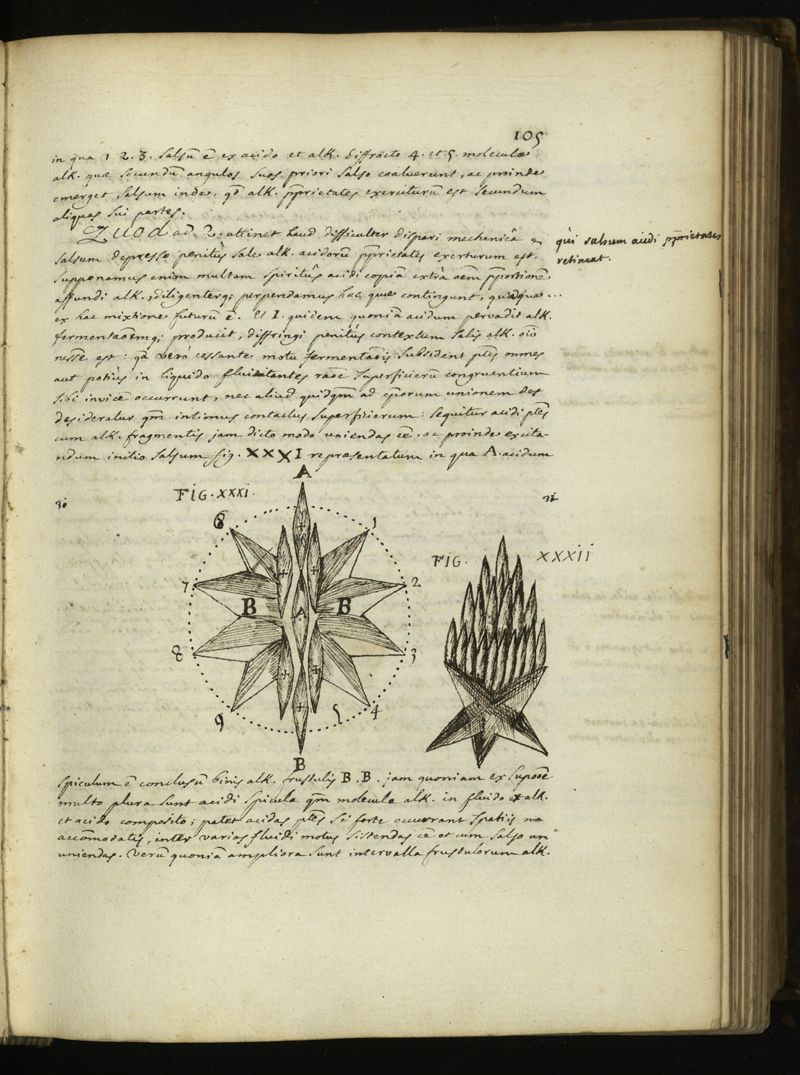 105
in qua 1 2. 3. salsũ ẽ ex acido et alk. diffracto 4. et 5. moleculæ
alk. quæ secundũ angulos suos priori salso coaluerunt, ac proinde
emerget salsum inde, qđ alk. pprietates exerciturũ est secundum
aliquas sui partes.
Quod ad 2. attinet haud difficulter dispari mechanicâ
salsum depresso penitùs sale alk. acidorũ pprietates exerturum est.
qui salsum acidi pprietates
retineat.
supponamus enim multam spiritûs acidi copiã extrà oẽm pportionẽ
affundi alk., diligenterq; perpendamus hæc quæ contingunt,
ex hac mixtione futurũ ẽ. Et 1. quidem quoniã acidum pervadit alk.
fermentãoẽmq; producit, diffringi penitùs contextum salis alk. oĩo
nesse est: verò cessante motu fermentãois subsident ptes omnes
aut potiùs in liquido fluitantes raõe superficierũ congruentium
sibi invicẽ occurrunt, nec aliud quidqm ad eorum unionem des
desideratur qm intimus contactus superficierum: sequitur acidi ptes
cum alk. fragmentis jam dicto modo uniendas eẽ, ac proinde excita-
ndum initio salsum fig. XXXI repræsentatum in qua A. acidum
FIG. XXXI.
A
6 1
7 2
B B
A
8 3
9 5 4
B
FIG. XXXII
spiculum ẽ conclusũ binis alk. frustulis B. B. jam quoniam ex
multo plura sunt acidi spicula qm moleculæ alk. in fluido ex alk.
et acido composito; patet acidas ptes si forte occurrant spatiis
accõmodatis, inter varios fluidi motus sistendas eẽ et cum salso un
uniendas. Verũ quoniã ampliora sunt intervalla frustulorum alk.